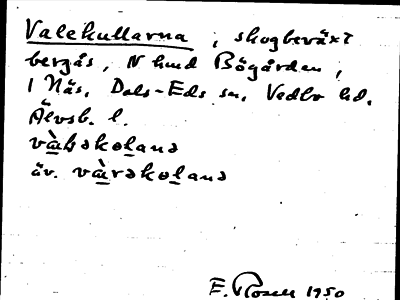 Valekullarna, skogbeväxt
bergås, N hmd Bögården,
1 Näs, Dals-Eds sn, Vedbo hd,
Älvsb. l.
và̠ləkol̠anə
äv. và̠rəkol̠anə
E. Rosell 1950